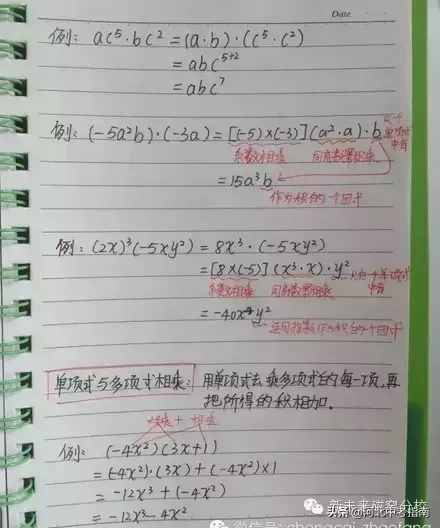 Date
例: ac⁵·bc² = (a·b)·(c⁵·c²)
= abc⁵⁺²
= abc⁷
例: (-5a²b)·(-3a) = [(-5)×(-3)](a²·a)·b
系数相乘 同底数幂相乘
= 15a³b
作为积的一个因式
例: (2x)³(-5xy²) = 8x³·(-5xy²)
= [8×(-5)](x³·x)·y² 只在一个单项式中有
系数相乘 同底数幂相乘
= -40x⁴y²
连同指数作为积的一个因式
单项式与多项式相乘: 用单项式去乘多项式的每一项,再
把所得的积相加.
例: (-4x²)(3x+1)
= (-4x²)·(3x)+(-4x²)×1
= -12x³+(-4x²)
= -12x³-4x²
新未来碳窑分校
头条@河北中考指南